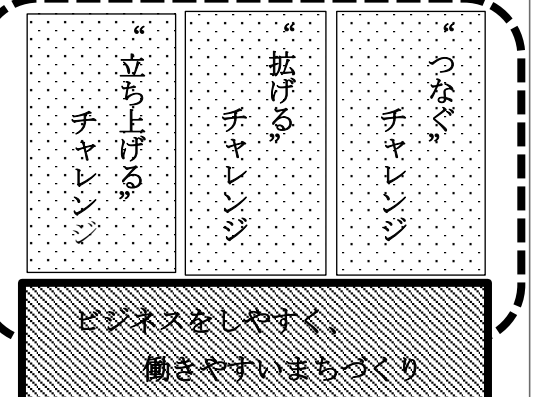 “つなぐ”
チャレンジ
“拡げる”
チャレンジ
“立ち上げる”
チャレンジ
ビジネスをしやすく、
働きやすいまちづくり